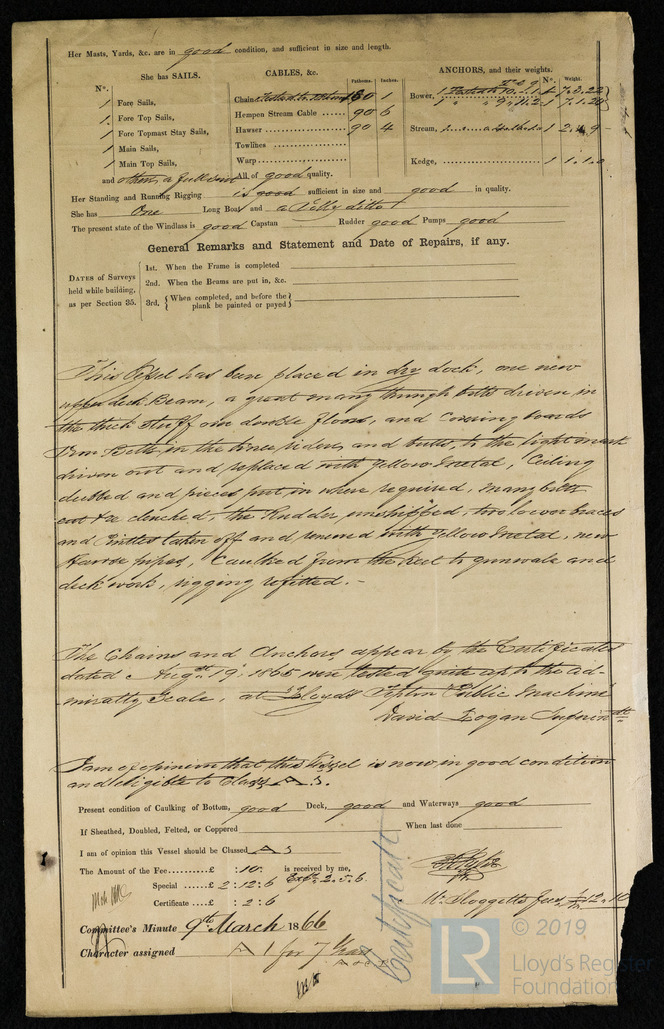 Her Masts, Yards, &c. are in good condition, and sufficient in size and length.
She has SAILS.
CABLES, &c.
Fathoms. Inches.
ANCHORS, and their weights.
Nº. Weight.
Nº.
1 Fore Sails,
1 Fore Top Sails,
1 Fore Topmast Stay Sails,
1 Main Sails,
1 Main Top Sails,
and others a full suit
Chain 1
Hempen Stream Cable 90 6
Hawser 90 4
Towlines
Warp
All of good quality.
Bower,
Stream,
Kedge, 1 1.1.0
Her Standing and Running Rigging is good sufficient in size and good in quality.
She has One Long Boat and a Jolly ditto
The present state of the Windlass is good Capstan Rudder good Pumps good
General Remarks and Statement and Date of Repairs, if any.
DATES of Surveys held while building, as per Section 35.
1st. When the Frame is completed
2nd. When the Beams are put in, &c.
3rd. {When completed, and before the plank be painted or payed}
This Vessel has been placed in dry dock, one new
upper deck Beam, a great many through bolts driven in
the thick stuff over double floors, and Covering boards
Iron Bolts in the knee riders, and butts, to the light mark
driven out and replaced with yellow metal, Ceiling
dubbed and pieces put in where required, many bolts
cut & re clenched, the Rudder unshipped, two lower braces
and Pintles taken off and renewed with yellow metal, new
hawse pipes, Caulked from the keel to gunwale and
deck work, rigging refitted.-
The Chains and Anchors, appear by the Certificates
dated Augst 19, 1865 were tested quite up to the Ad-
miralty Scale, at Lloyds Tipton Public Machine
David Logan Superindt
I am of opinion that this Vessel is now in good condition
and eligible to Class A 1.
Present condition of Caulking of Bottom, good Deck, good and Waterways good
If Sheathed, Doubled, Felted, or Coppered When last done
I am of opinion this Vessel should be Classed A 1
The Amount of the Fee £ :10. is received by me,
Special £ 2:12:6 Expr. 2.5.6.
Certificate £ :2:6
Certificate
Committee's Minute 9th March 1866
Character assigned A 1 for 7 Years
LR
© 2019
Lloyd's Register
Foundation